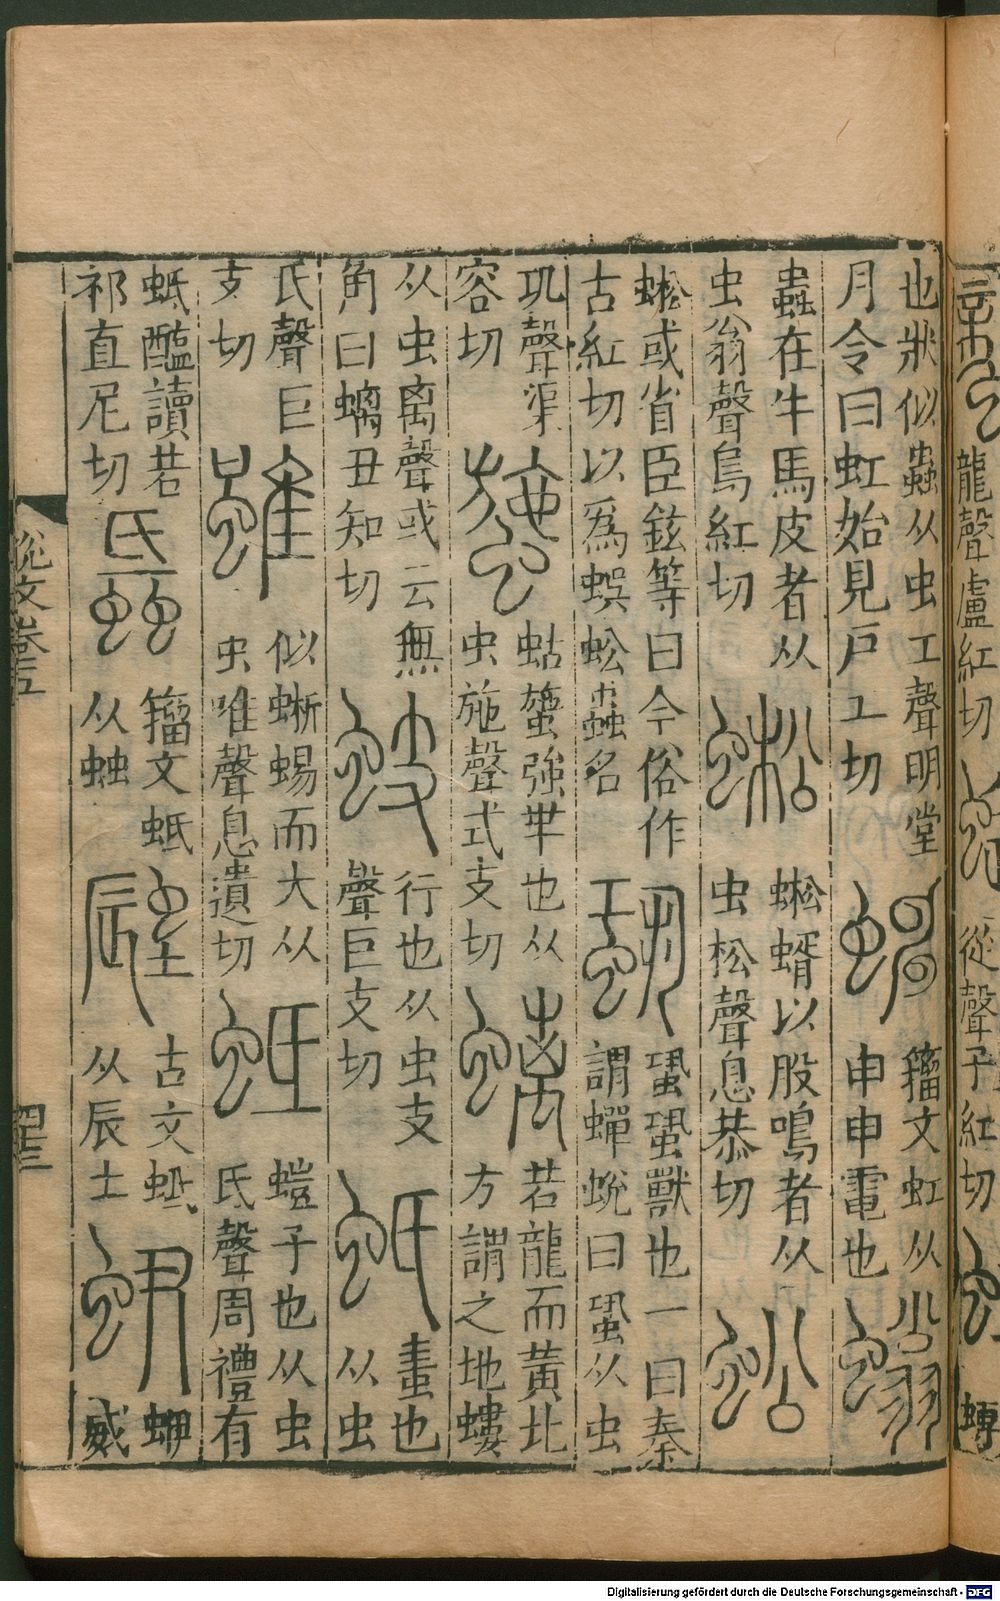 龍聲盧紅切
從聲子紅切
也狀似蟲从虫工聲明堂
月令曰虹始見戶工切
籀文虹从
申申電也
螉
蟲在牛馬皮者从
虫翁聲烏紅切
蜙
蜙蝑以股鳴者从
虫松聲息恭切
蚣
蜙或省臣鉉等曰今俗作
古紅切以爲蜈蚣蟲名
蛩
蛩蛩獸也一曰秦
謂蟬蛻曰蛩从虫
巩聲渠
容切
䗐
蛄䗐強羋也从
虫施聲式支切
螭
若龍而黃北
方謂之地螻
从虫离聲或云無
角曰螭丑知切
蚑
行也从虫支
聲巨支切
蚔
畫也
从虫
氏聲巨
支切
雖
似蜥蜴而大从
虫唯聲息遺切
蚳
螘子也从虫
氐聲周禮有
蚳醢讀若
祁直尼切
籀文蚳
从䖵
古文蚳
从辰土
蛜
蛜
威
說文卷
Digitalisierung gefördert durch die Deutsche Forschungsgemeinschaft - DFG